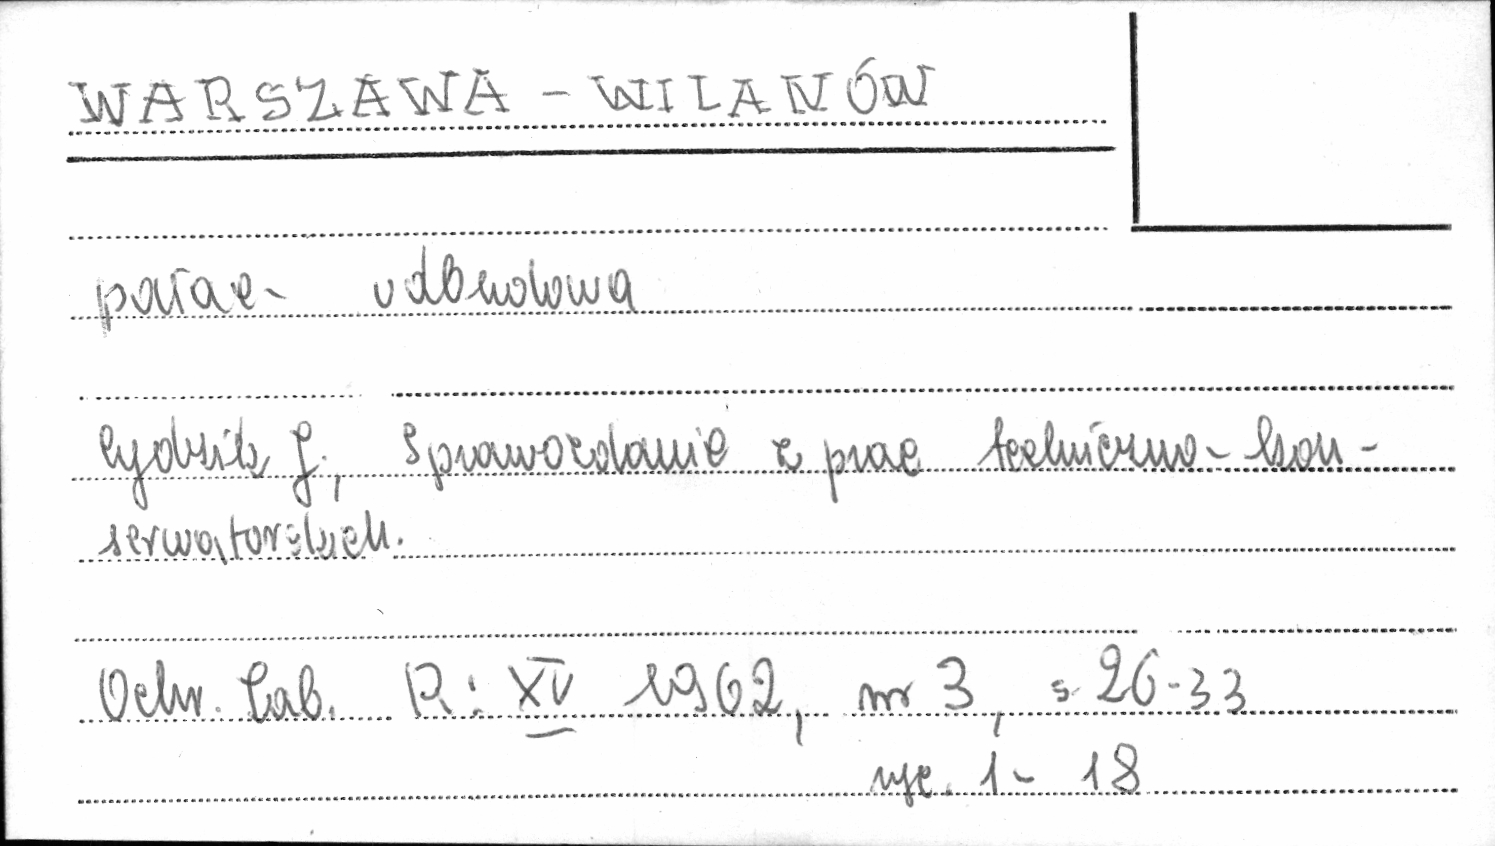 WARSZAWA - WILANÓW
pałac - odbudowa
Cydzik J., Sprawozdanie z prac techniczno-kon-
serwatorskich.
Ochr. Zab. R: XV 1962, nr 3, s. 26-33
ryc. 1 - 18